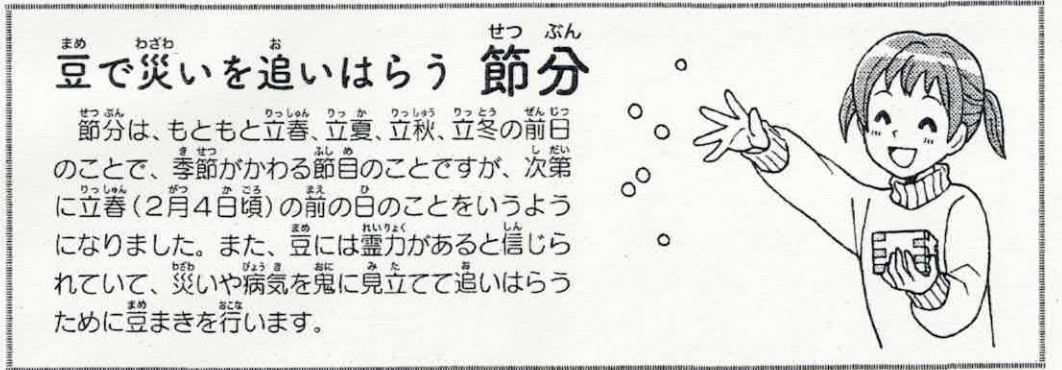 豆で災いを追いはらう 節分
節分は、もともと立春、立夏、立秋、立冬の前日
のことで、季節がかわる節目のことですが、次第
に立春(2月4日頃)の前の日のことをいうよう
になりました。また、豆には霊力があると信じら
れていて、災いや病気を鬼に見立てて追いはらう
ために豆まきを行います。